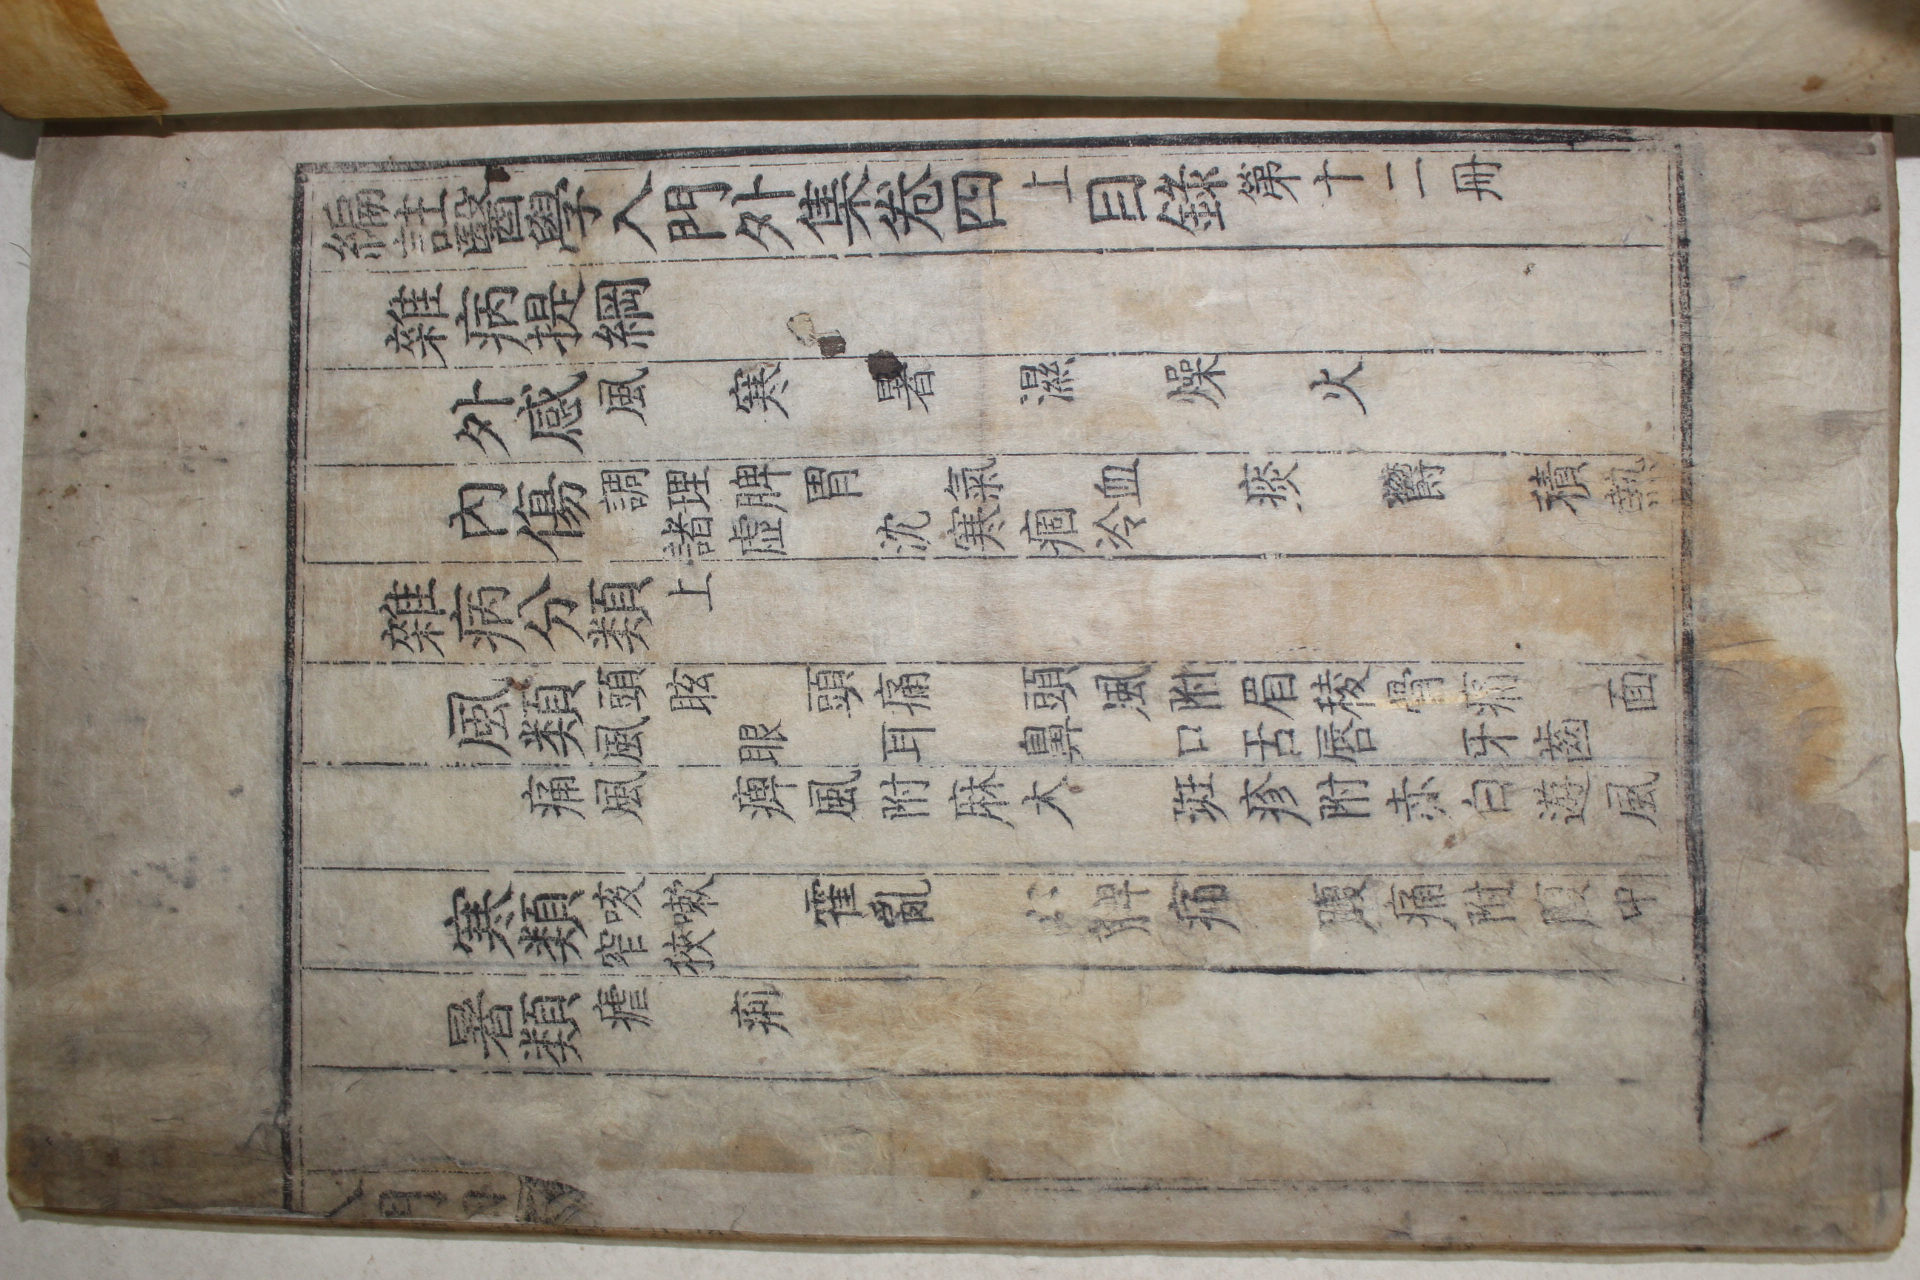 編註醫學入門外集卷四上目錄第十二冊
雜病提綱
外感風 寒 暑 濕 燥 火
內傷調理脾胃 氣 血 痰 鬱 積熱
諸虛 沈寒痼冷
雜病分類上
風類頭眩 頭痛 頭風附眉稜骨痛 面
風 眼 耳 鼻 口舌唇 牙齒
痛風 痺風附麻木 斑疹附赤白遊風
寒類咳嗽 霍亂 脾痛 腹痛附腹中
窄狹
暑類瘧 痢